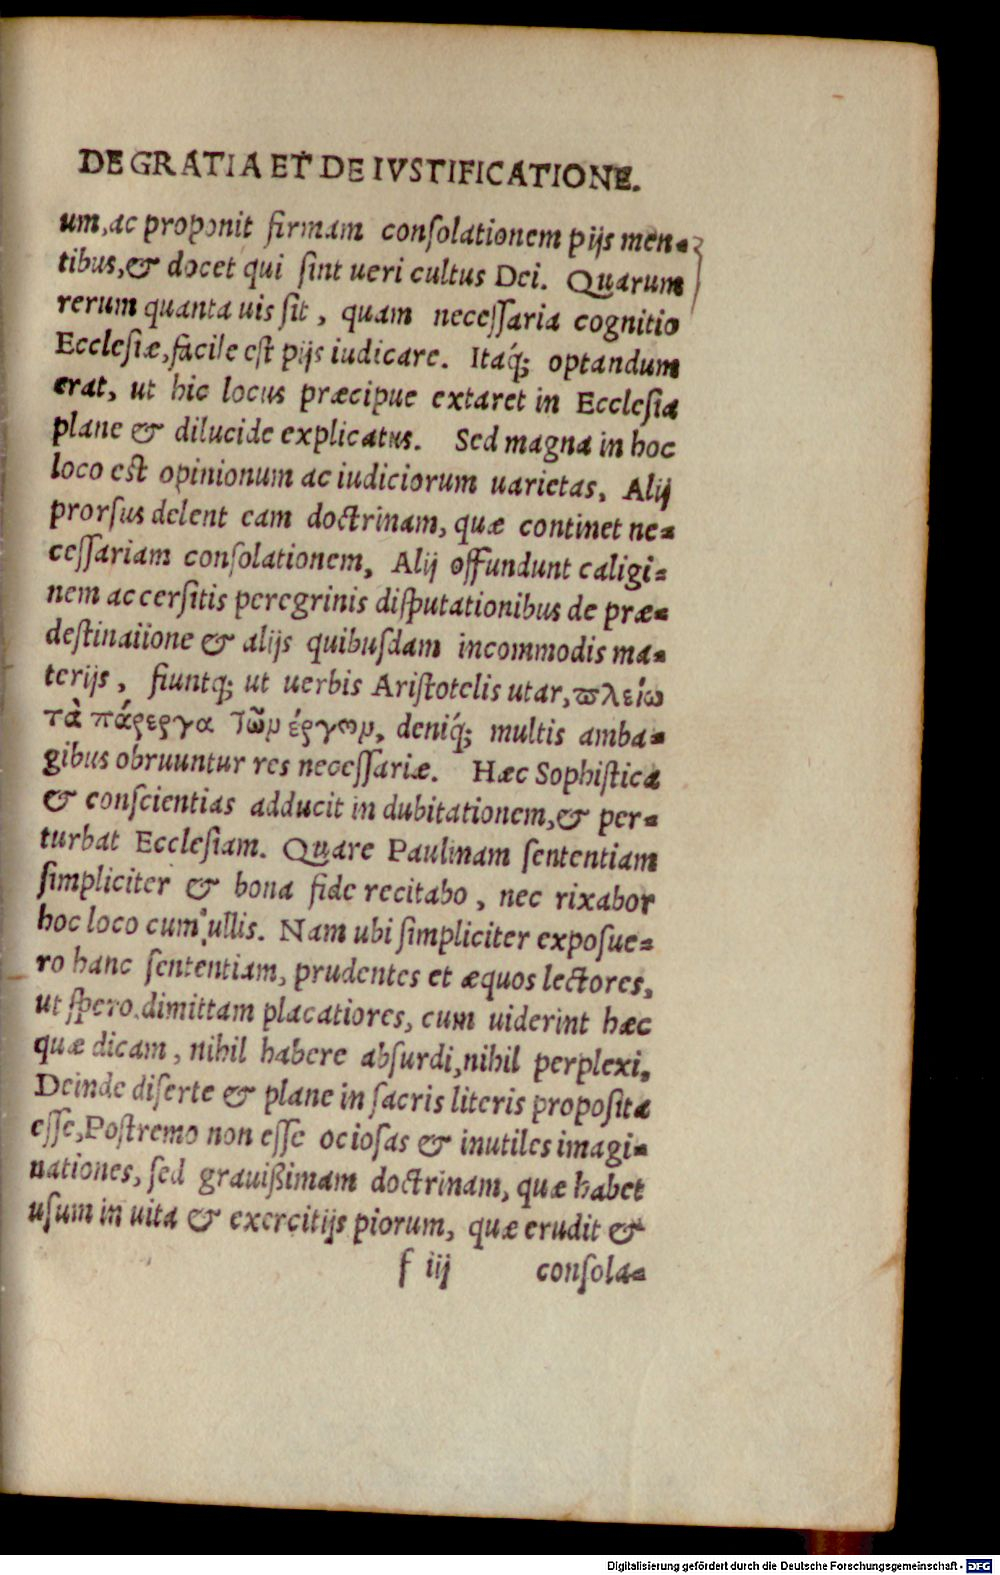 DE GRATIA ET DE IVSTIFICATIONE.
um, ac proponit firmam conſolationem pijs men-
tibus, & docet qui ſint ueri cultus Dei. Quarum
rerum quanta uis ſit, quam neceſſaria cognitio
Eccleſiæ, facile eſt pijs iudicare. Itaq́; optandum
erat, ut hic locus præcipue extaret in Eccleſia
plane & dilucide explicatus. Sed magna in hoc
loco eſt opinionum ac iudiciorum uarietas, Alij
prorſus delent eam doctrinam, quæ continet ne-
ceſſariam conſolationem, Alij offundunt caligi-
nem accerſitis peregrinis diſputationibus de præ-
deſtinaiione & alijs quibuſdam incommodis ma-
terijs, fiuntq; ut uerbis Ariſtotelis utar, πλείω
τὰ πάρεργα τῶν έργων, deniq́; multis amba-
gibus obruuntur res neceſſariæ. Hæc Sophiſtica
& conſcientias adducit in dubitationem, & per-
turbat Eccleſiam. Quare Paulinam ſententiam
ſimpliciter & bona fide recitabo, nec rixabor
hoc loco cum ullis. Nam ubi ſimpliciter expoſue-
ro hanc ſententiam, prudentes et æquos lectores,
ut ſpero, dimittam placatiores, cum uiderint hæc
quæ dicam, nihil habere abſurdi, nihil perplexi,
Deinde diſerte & plane in ſacris literis propoſita
eſſe, Poſtremo non eſſe ocioſas & inutiles imagi-
nationes, ſed grauißimam doctrinam, quæ habet
uſum in uita & exercitijs piorum, quæ erudit &
f iij conſola-
Digitalisierung gefördert durch die Deutsche Forschungsgemeinschaft - DFG